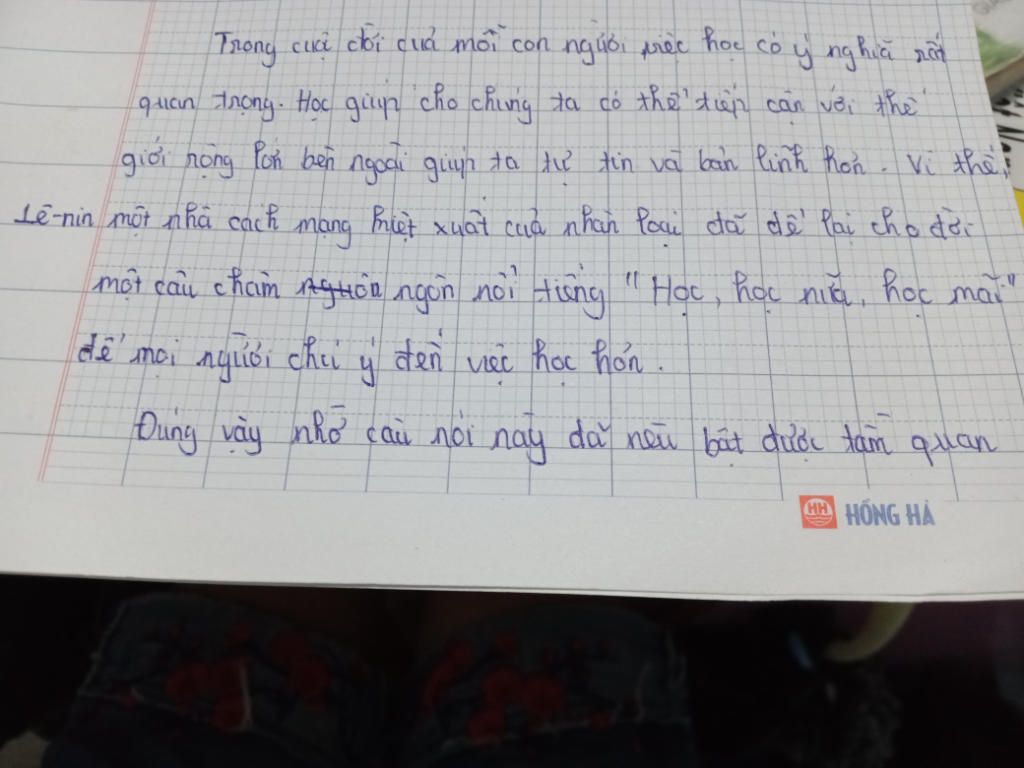 Trong cuộc đời của mỗi con người việc học có ý nghĩa rất
quan trọng. Học giúp cho chúng ta có thể tiếp cận với thế
giới rộng lớn bên ngoài giúp ta tự tin và bản lĩnh hơn. Vì thế,
Lê-nin một nhà cách mạng kiệt xuất của nhân loại đã để lại cho đời
một câu châm ngôn nổi tiếng "Học, học nữa, học mãi"
để mọi người chú ý đến việc học hơn.
Đúng vậy nhờ câu nói này đã nêu bật được tầm quan
HH HỒNG HÀ